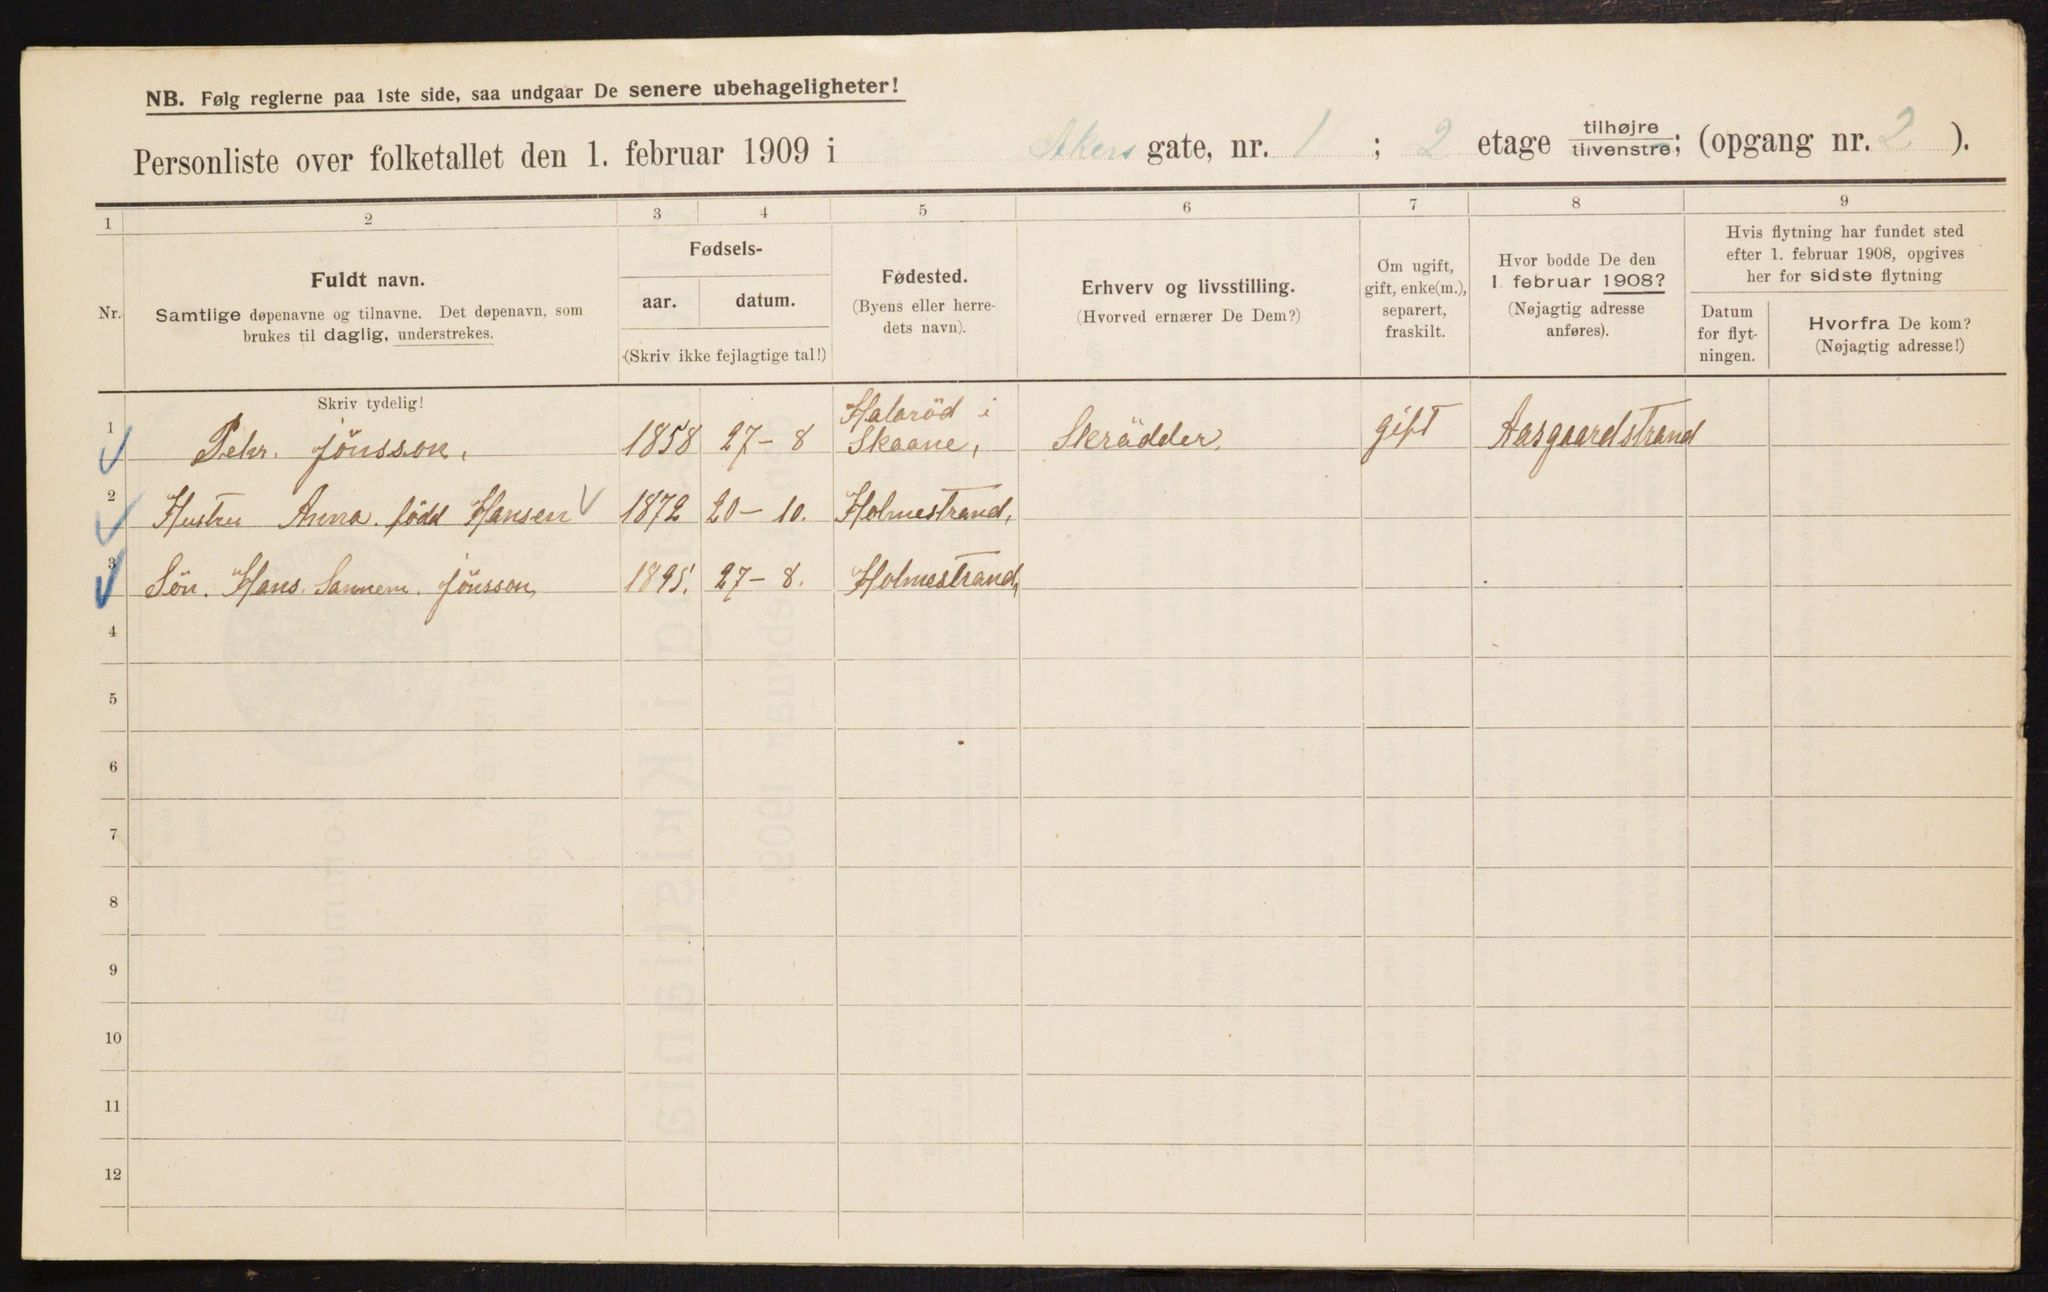 NB. Følg reglerne paa 1ste side, saa undgaar De senere ubehageligheter!
Personliste over folketallet den 1. februar 1909 i Akers gate, nr. 1 ; 2 etage tilhøjre tilvenstre; (opgang nr. 2 ).
1 2 3 4 5 6 7 8 9
Nr.
Fuldt navn.
Samtlige døpenavne og tilnavne. Det døpenavn, som
brukes til daglig, understrekes.
Fødsels-
aar. datum.
(Skriv ikke fejlagtige tal!)
Fødested.
(Byens eller herre-
dets navn).
Erhverv og livsstilling.
(Hvorved ernærer De Dem?)
Om ugift,
gift, enke(m.),
separert,
fraskilt.
Hvor bodde De den
1. februar 1908?
(Nøjagtig adresse
anføres).
Hvis flytning har fundet sted
efter 1. februar 1908, opgives
her for sidste flytning
Datum
for flyt-
ningen.
Hvorfra De kom?
(Nøjagtig adresse!)
Skriv tydelig!
1 Pehr. Jönsson, 1858 27-8 Halaröd i Skaane, Skrädder, gift Aasgaardstrand
2 Hustru Anna. född Hansen 1872 20-10. Holmestrand,
3 Sön. Hans. Sannem. Jönsson, 1895. 27-8. Holmestrand,
4
5
6
7
8
9
10
11
12